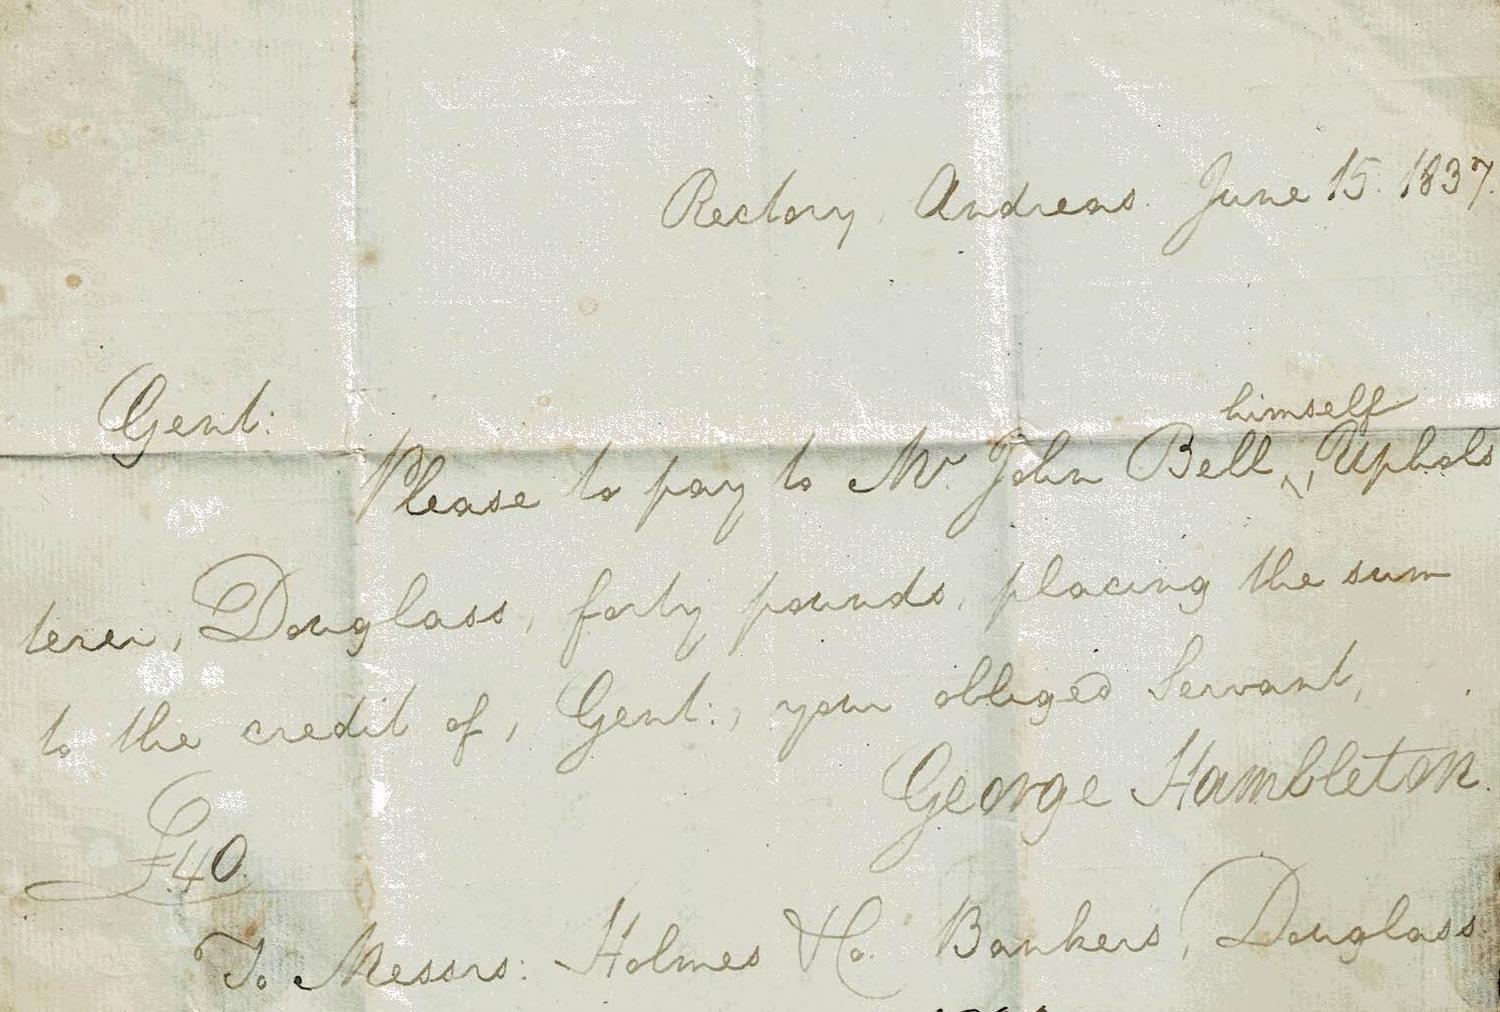 Rectory, Andreas. June 15. 1837.
Gent:
himself
Please to pay to Mr. John Bell ^, Uphols
terer, Douglass, forty pounds, placing the sum
to the credit of, Gent:, your obliged Servant,
George Hambleton.
£40.
To Messrs: Holmes & Co. Bankers, Douglass.